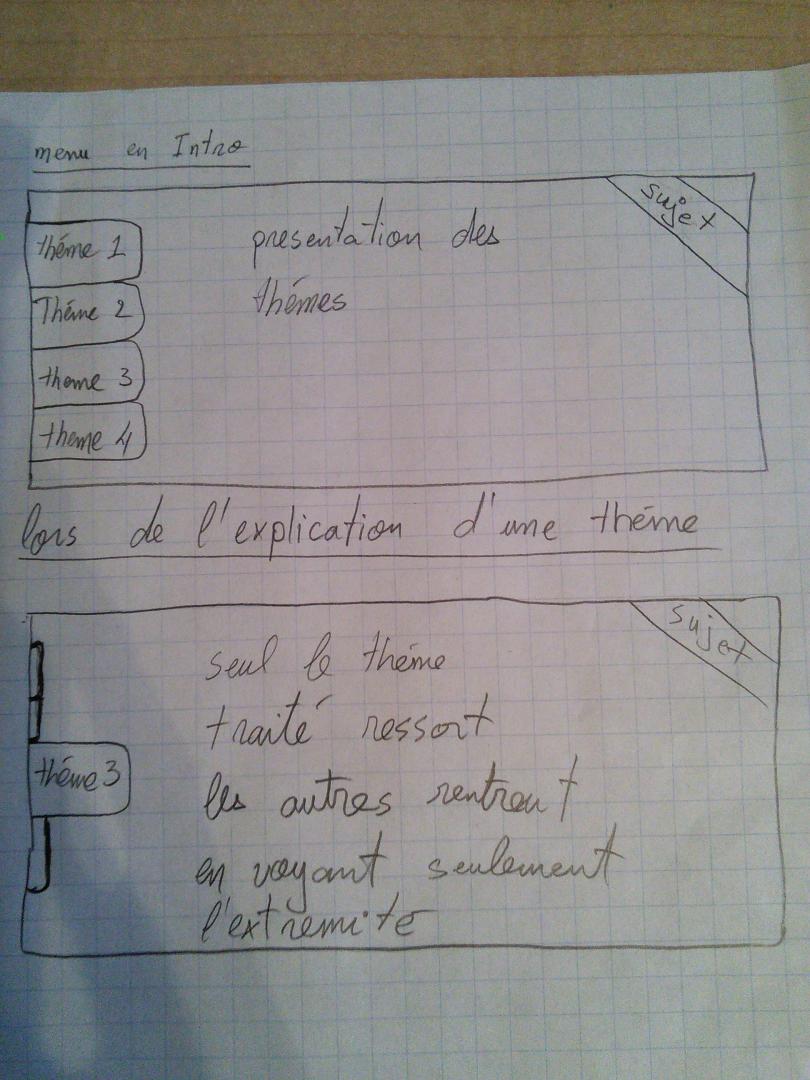 menu en Intro
sujet
théme 1
presentation des
Théme 2
thémes
thome 3
theme 4
lors de l'explication d'une théme
sujet
seul le théme
traité ressort
théme 3
les autres rentrent
en voyant seulement
l'extremité